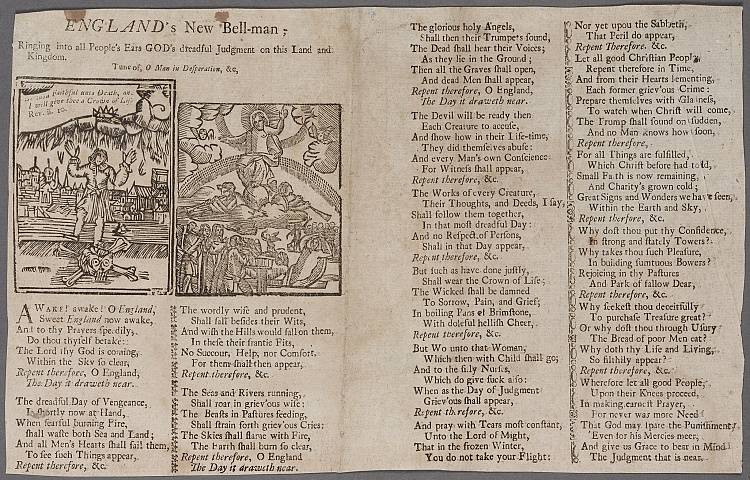 ENGLAND's New Bell-man;
Ringing into all People's Ears GOD's dreadful Judgment on this Land and
Kingdom.
Tune of, O Man in Desperation, &c,
Faithful unto Death, and
I will give thee a Crown of Life
Rev. 2. 10.
AWAKE! awake! O England,
Sweet England now awake,
And to thy Prayers speedily,
Do thou thyself betake:
The Lord thy God is coming,
Within the Sky so clear,
Repent therefore, O England,
The Day it draweth near.
The dreadful Day of Vengeance,
Is shortly now at Hand,
When fearful burning Fire,
shall waste both Sea and Land;
And all Men's Hearts shall fail them,
To see such Things appear,
Repent therefore, &c.
The wordly wise and prudent,
Shall fall besides their Wits,
And wish the Hills would fall on them,
In these their frantic Fits,
No Succour, Help, nor Comfort,
For them shall then appear,
Repent therefore, &c.
The Seas and Rivers running,
Shall roar in grievous wise:
The Beasts in Pastures feeding,
Shall strain forth griev'ous Cries:
The Skies shall flame with Fire,
The Earth shall burn so clear,
Repent therefore, O England
The Day it draweth near.
The glorious holy Angels,
Shall then their Trumpets sound,
The Dead shall hear their Voices;
As they lie in the Ground;
Then all the Graves shall open,
And dead Men shall appear,
Repent therefore, O England,
The Day it draweth near.
The Devil will be ready then
Each Creature to accuse,
And show how in their Life-time,
They did themselves abuse:
And every Man's own Conscience
For Witness shall appear,
Repent therefore, &c.
The Works of every Creature,
Their Thoughts, and Deeds, I say,
Shall follow them together,
In that most dreadful Day:
And no Respect of Persons,
Shall in that Day appear,
Repent therefore, &c.
But such as have done justly,
Shall wear the Crown of Life;
The Wicked shall be damned
To Sorrow, Pain, and Grief;
In boiling Pans of Brimstone,
With doleful hellish Cheer,
Repent therefore, &c.
But Wo unto that Woman,
Which then with Child shall go;
And to the silly Nurses,
Which do give suck also:
When as the Day of Judgment
Griev'ous shall appear,
Repent therefore, &c.
And pray with Tears most constant,
Unto the Lord of Might,
That in the frozen Winter,
You do not take your Flight:
Nor yet upon the Sabbath,
That Peril do appear,
Repent Therefore, &c.
Let all good Christian People,
Repent therefore in Time,
And from their Hearts lementing,
Each former griev'ous Crime:
Prepare themselves with Gladness,
To watch when Christ will come,
The Trump shall sound on sudden,
And no Man knows how soon,
Repent therefore,
For all Things are fulfilled,
Which Christ before had told,
Small Faith is now remaining,
And Charity's grown cold;
Great Signs and Wonders we have seen,
Within the Earth and Sky,
Repent therfore, &c.
Why dost thou put thy Confidence,
In strong and stately Towers?
Why takes thou such Pleasure,
In building sumtuous Bowers?
Rejoicing in thy Pastures
And Park of fallow Dear,
Repent therefore, &c.
Why seekest thou deceitfully
To purchase Treasure great?
Or why dost thou through Usury
The Bread of poor Men eat?
Why doth thy Life and Living,
So filthily appear?
Repent therefore, &c.
Wherefore let all good People,
Upon their Knees proceed,
In making earnest Prayer,
For never was more Need
That God may spare the Punishment,
Even for his Mercies meer;
And give us Grace to bear in Mind
The Judgment that is near.